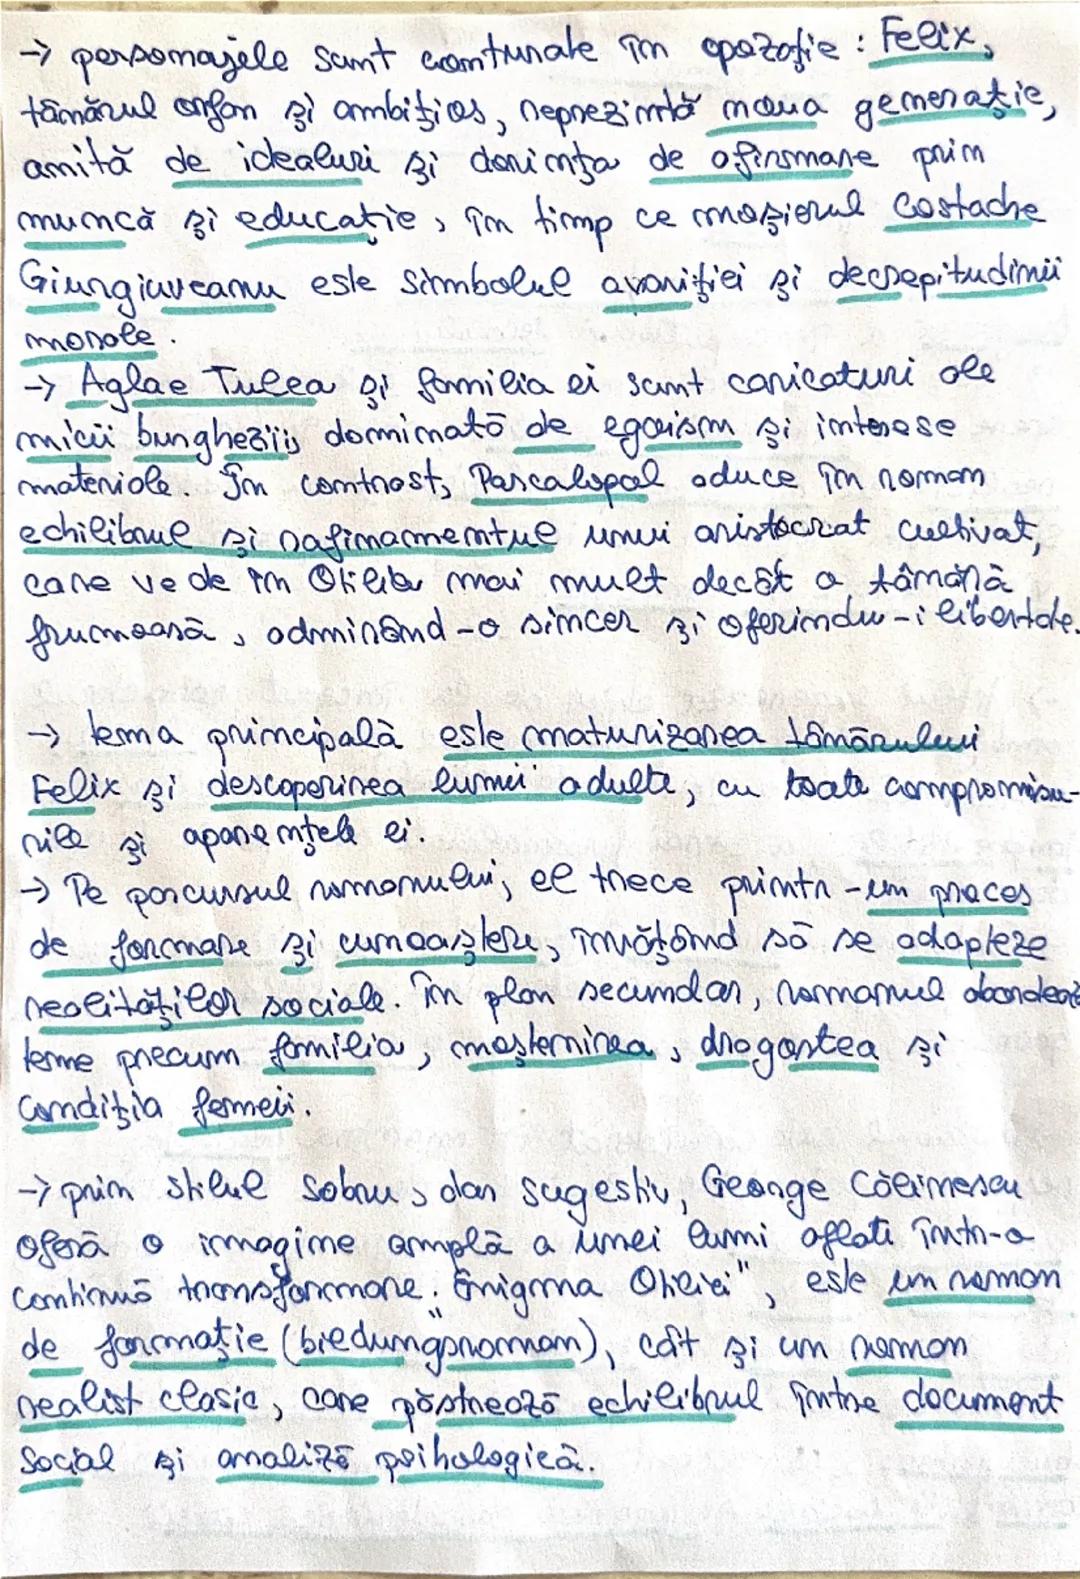 → personajele sunt conturate în opoziție: Felix,
tânărul orfan și ambițios, reprezintă noua generație,
amită de idealuri și dorința de afirmare prin
muncă și educație, în timp ce moșierul Costache
Giurgiuveanu este simbolul avariției și decrepitudinii
morale.
→ Aglae Tulea și familia ei sunt caricaturi ale
micii burghezii, dominată de egoism și interese
materiale. În contrast, Pascalopol aduce în roman
echilibrul și rafinamentul unui aristocrat cultivat,
care vede în Otilia mai mult decât o tânără
frumoasă, admirând-o sincer și oferindu-i libertate.
→ tema principală este maturizarea tânărului
Felix și descoperirea lumii adulte, cu toate compromisu-
rile și aparențele ei.
→ Pe parcursul romanului, el trece printr-un proces
de formare și cunoaștere, învățând să se adapteze
realităților sociale. În plan secundar, romanul abordează
teme precum familia, moștenirea, dragostea și
condiția femeii.
→ prin stilul sobru, dar sugestiv, George Călinescu
oferă o imagine amplă a unei lumi aflate într-o
continuă transformare. „Enigma Otiliei", este un roman
de formație (biedungsroman), cât și un roman
realist clasic, care păstrează echilibrul între document
social și analiză psihologică.